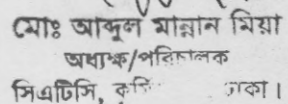 মোঃ আব্দুল মান্নান মিয়া
অধ্যক্ষ/পরিচালক
সিএটিসি,